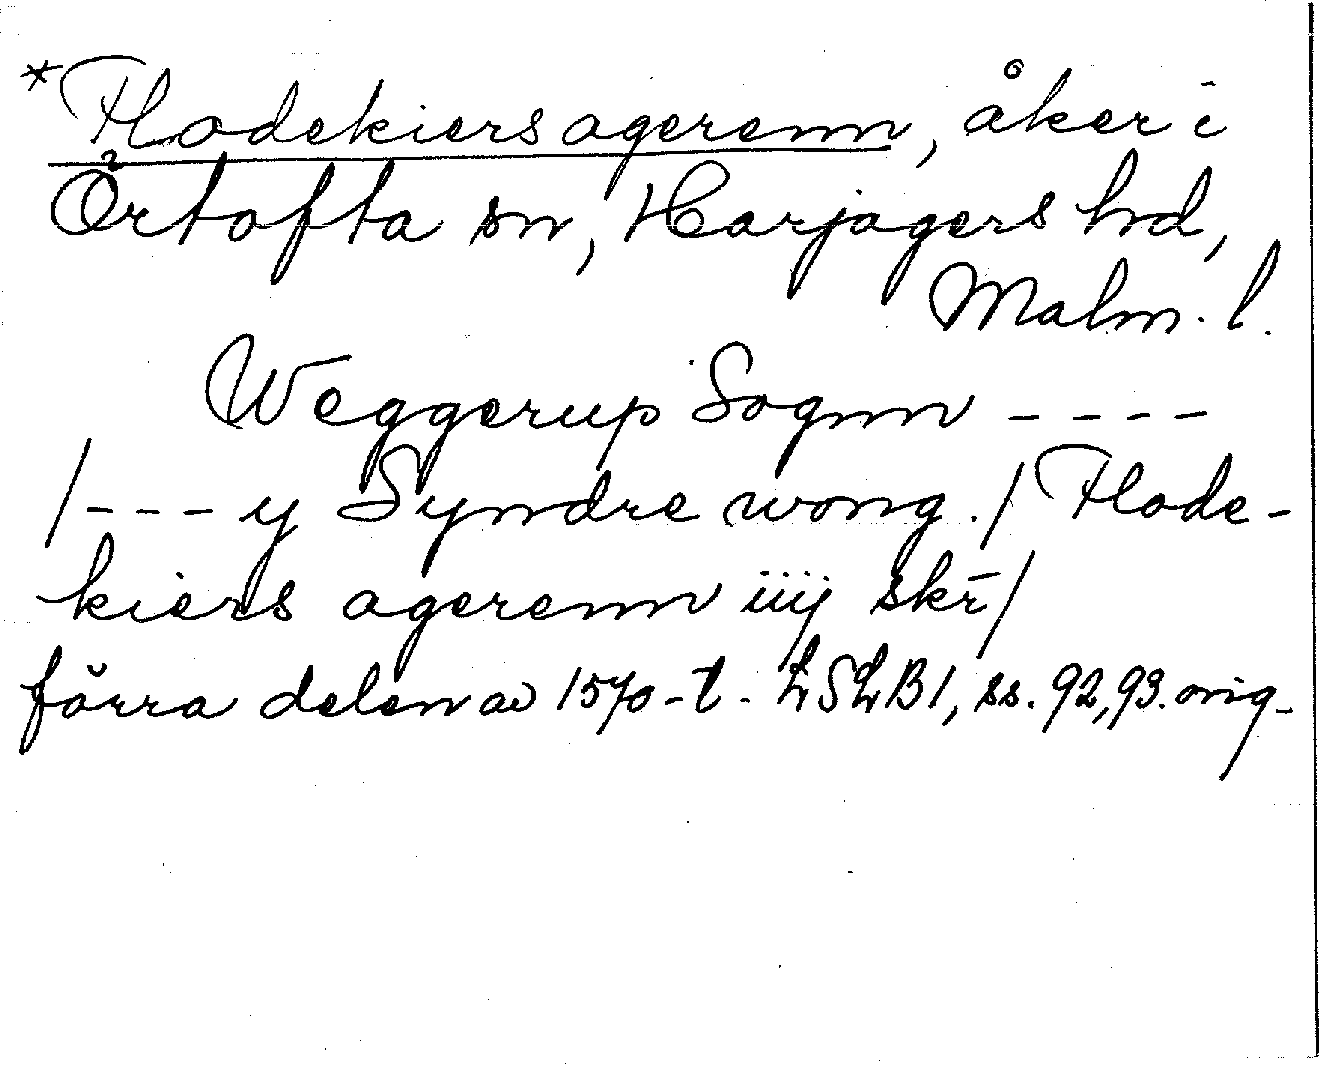 *Flodekiers agerenn, åker i
Örtofta sn, Harjagers hd,
Malm. l.
Weggerup Sognn ----
/--- y Syndre wong ./ Flode-
kiers agerenn iiij skr̄/
förra delen av 1570-t. LSLB1, ss. 92, 93. orig.